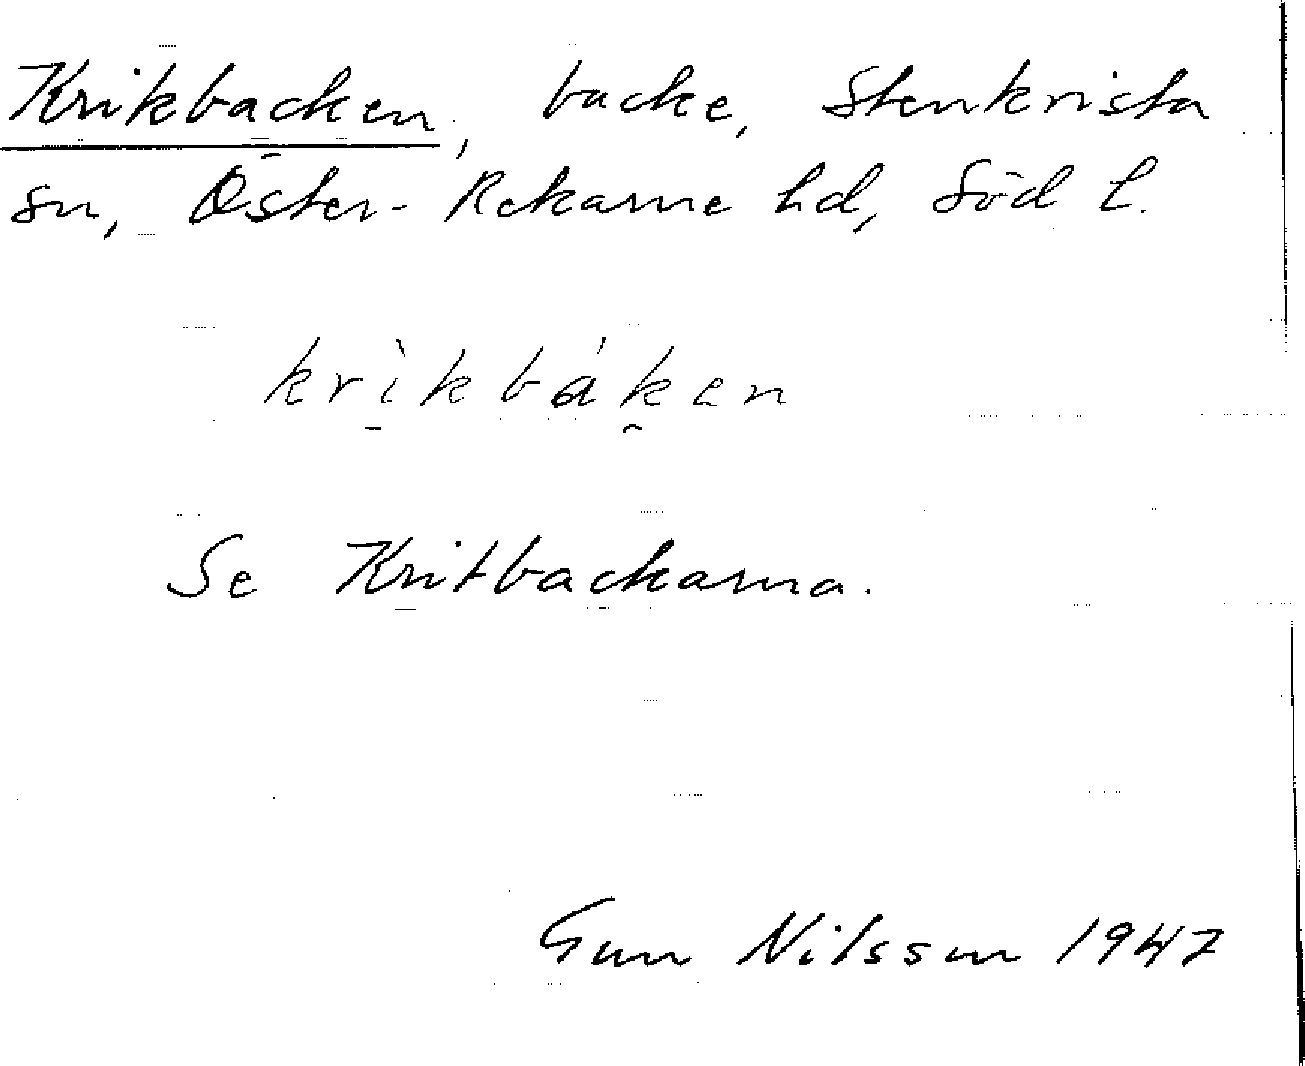 Krikbacken, backe, Stenkvista
sn, Öster-Rekarne hd, Söd l.
krìkbákan
Se Kritbackarna.
Gun Nilsson 1947